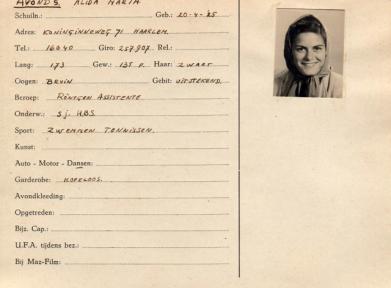 AVONDS ALIDA MARIA
Schuiln.: Geb.: 20-4-'25
Adres: KONINGINNEWEG 71 HAARLEM.
Tel.: 16040 Giro: 257.907. Rel.:
Lang: 173 Gew.: 135 P. Haar: ZWART
Oogen: BRUIN Gebit: UITSTEKEND.
Beroep: RÖNTGEN ASSISTENTE
Onderw.: 5 j. H.B.S.
Sport: ZWEMMEN TENNISSEN.
Kunst:
Auto - Motor - Dansen:
Garderobe: HOPELOOS.
Avondkleeding:
Opgetreden:
Bijz. Cap.:
U.F.A. tijdens bez.:
Bij Maz-Film: